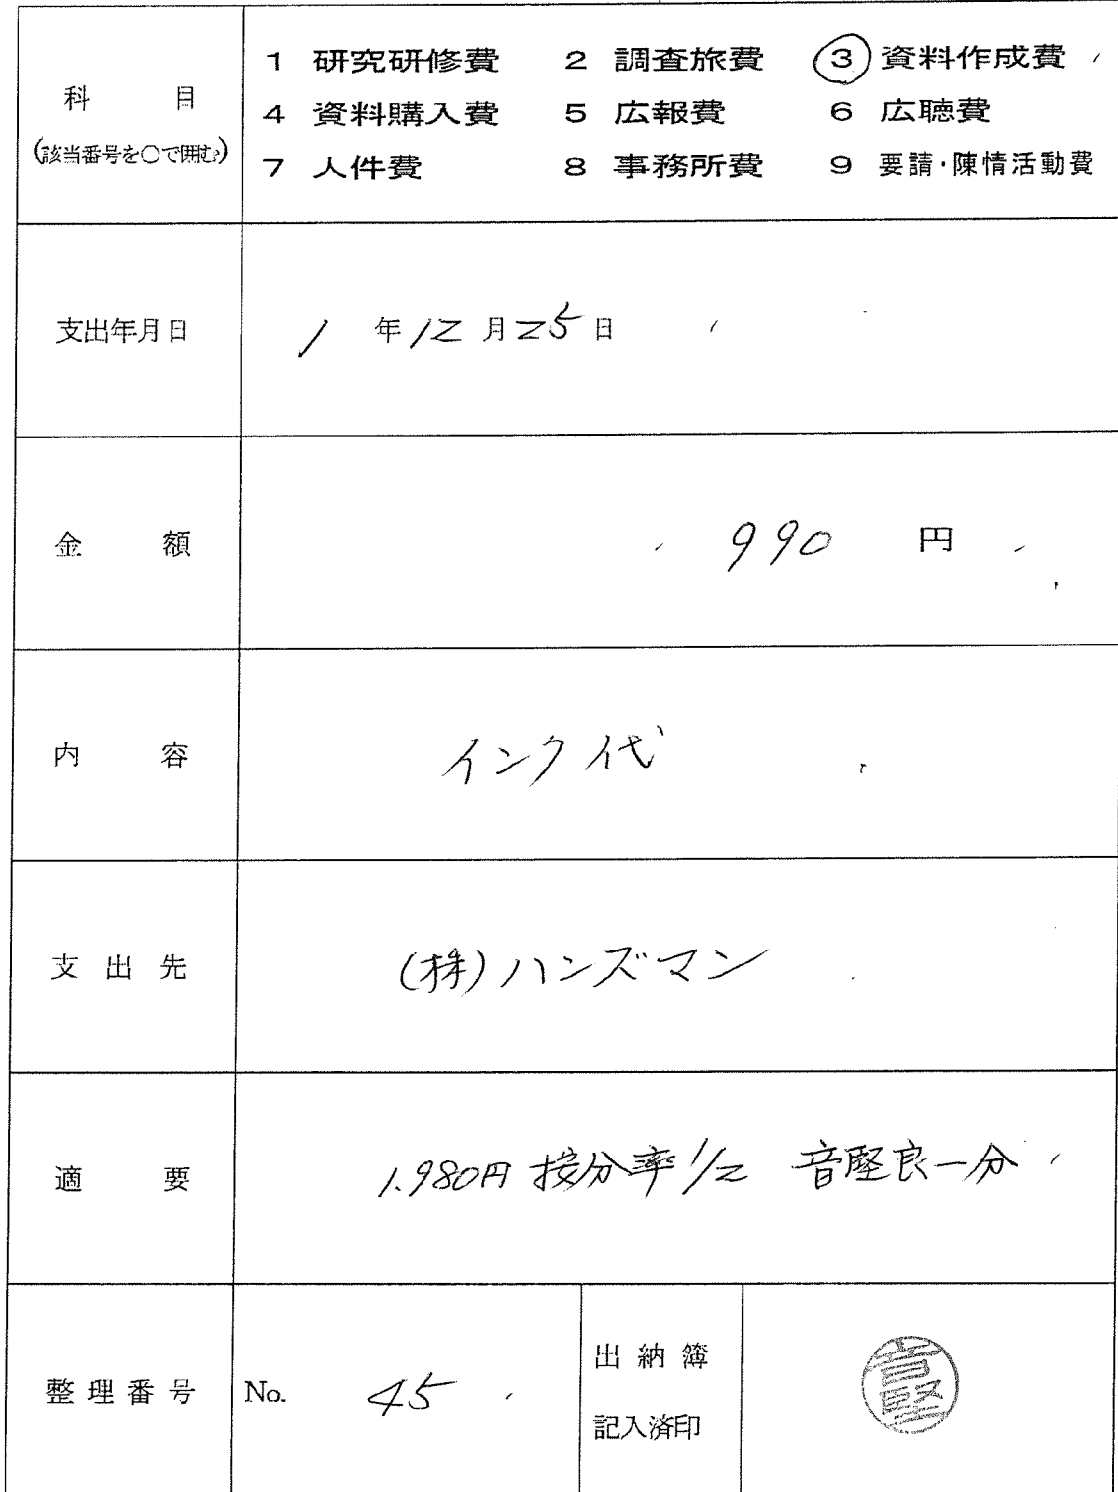 科目
(該当番号を○で囲む)
1 研究研修費 2 調査旅費 3 資料作成費
4 資料購入費 5 広報費 6 広聴費
7 人件費 8 事務所費 9 要請・陳情活動費
支出年月日 1年12月25日
金額 990円
内容 インク代
支出先 (株)ハンズマン
適要 1.980円 按分率1/2 音堅良一分
整理番号 No. 45
出納簿
記入済印
音堅